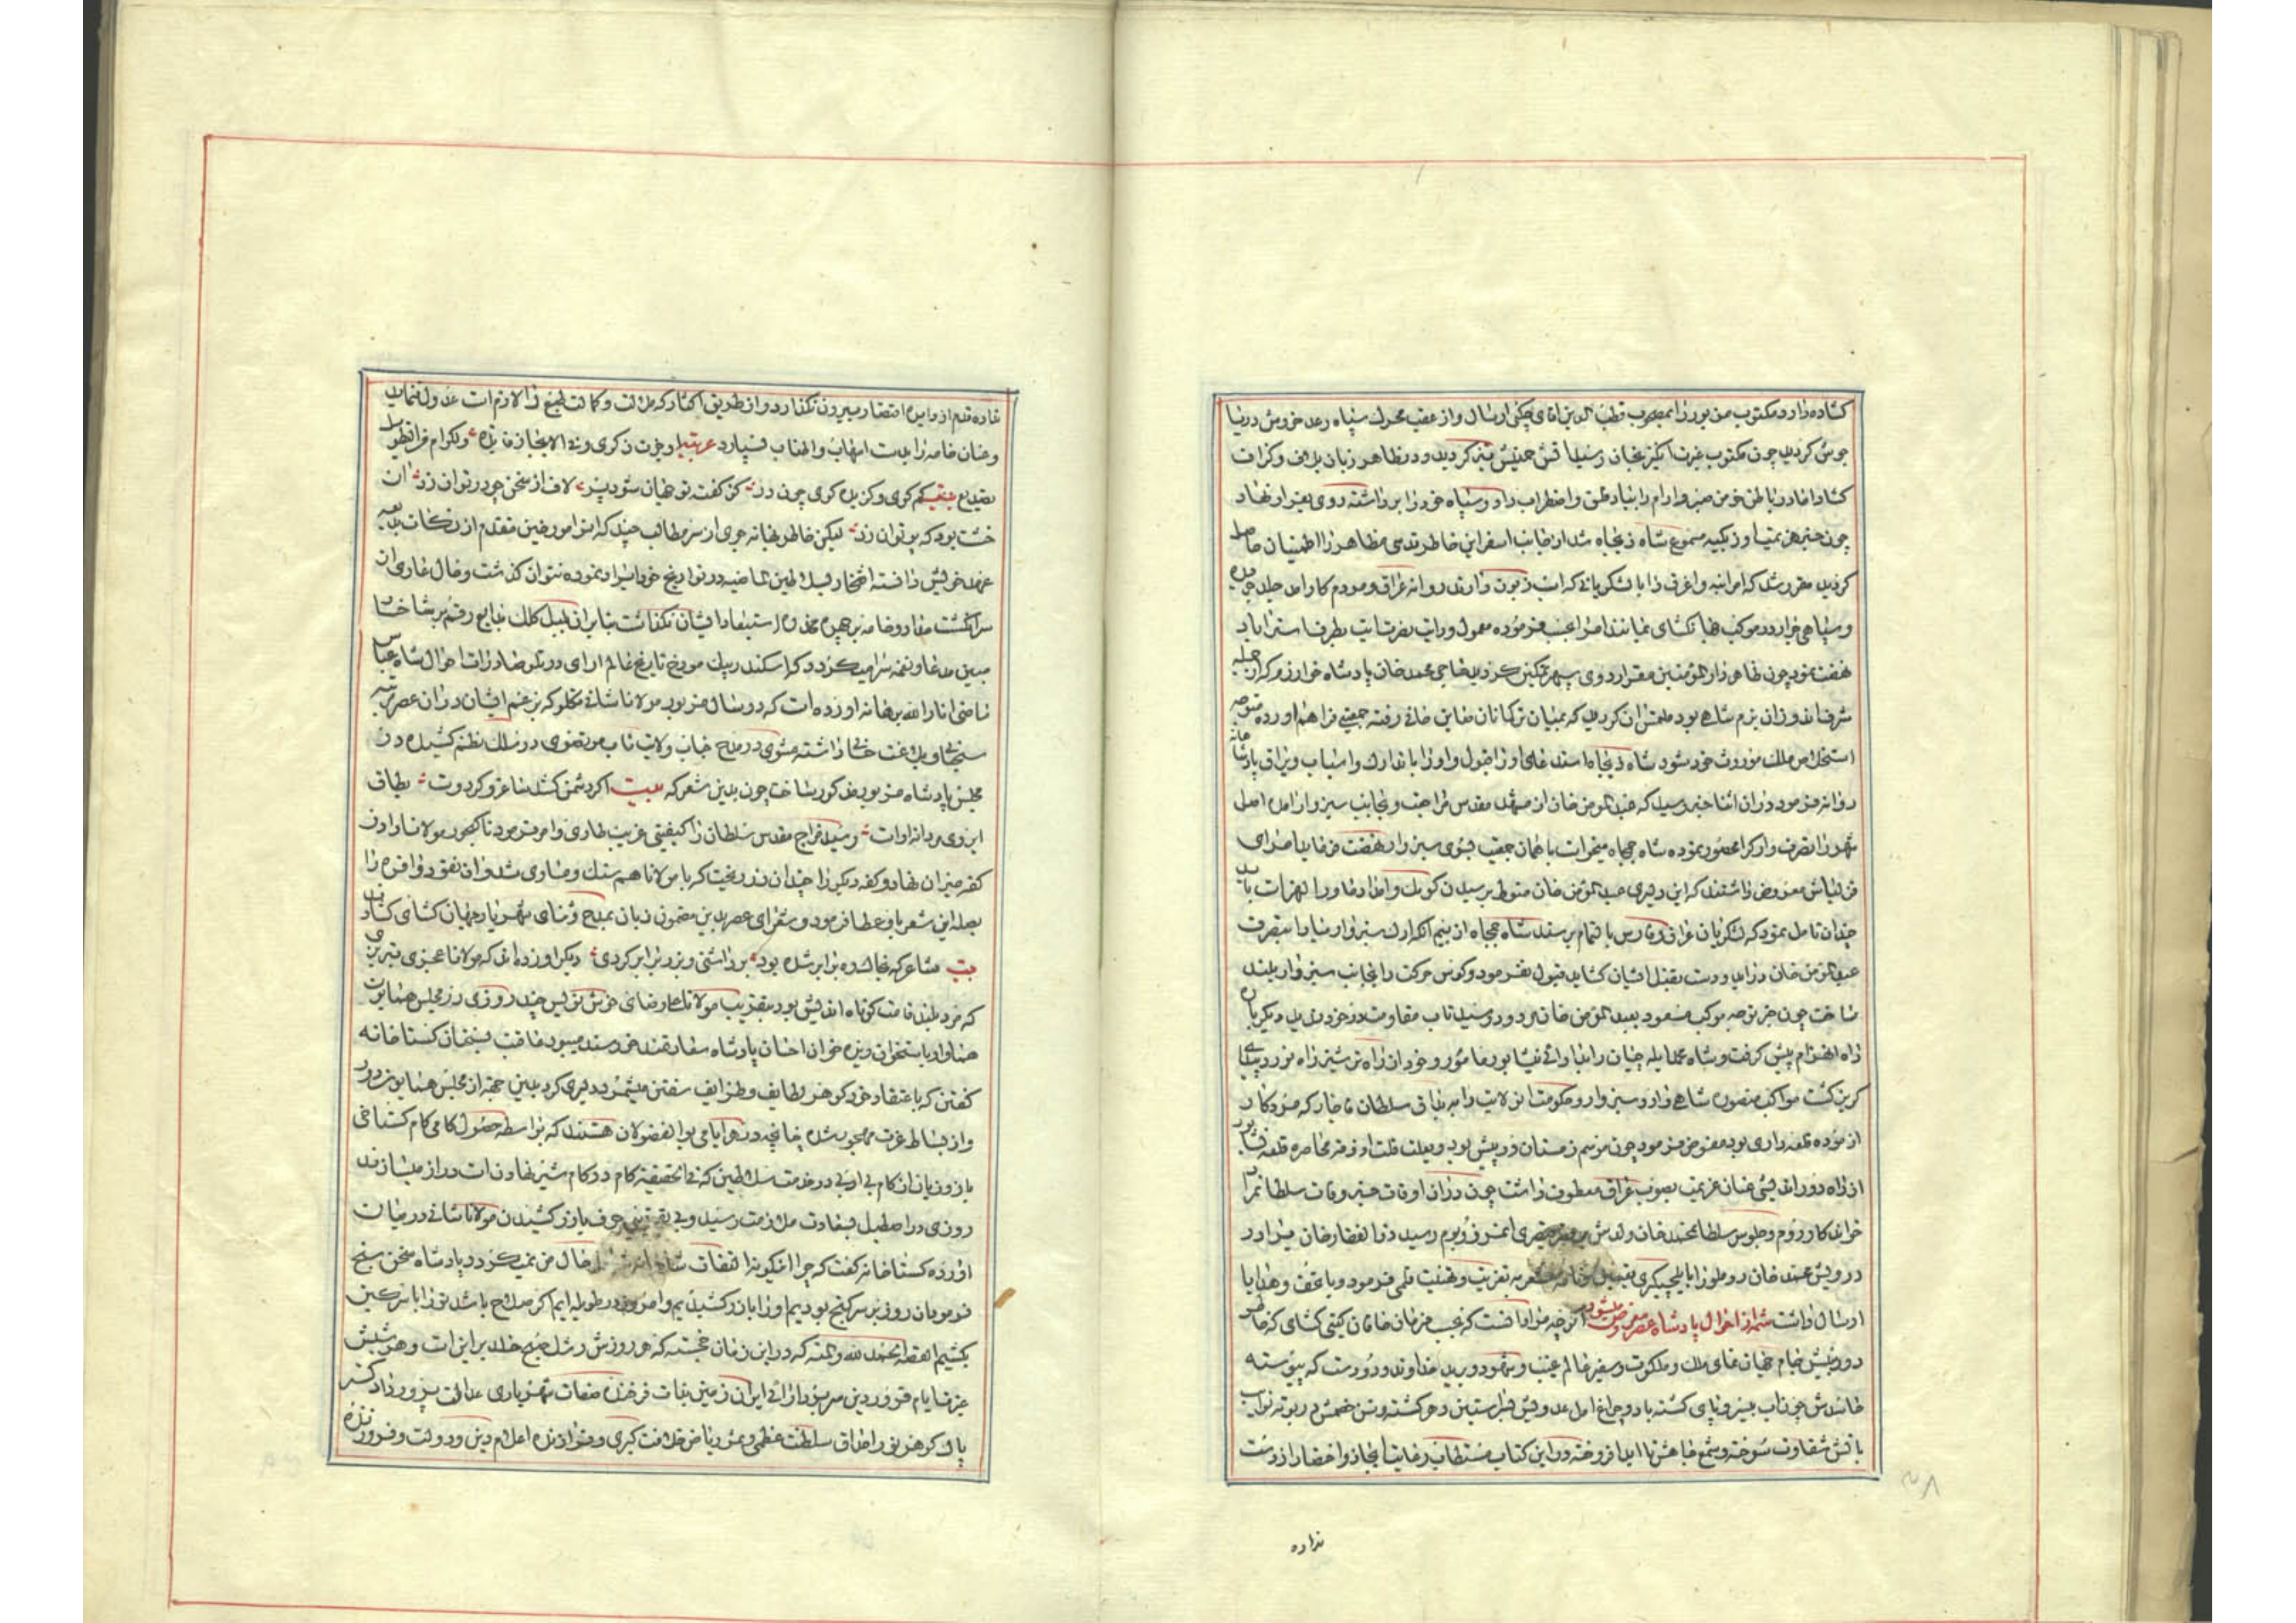 کشاده دارد مکتوب مزبور را بمصحوب قطب الدین اقای چکنی ارسال و از عقب محرک سپاه رعد خروش دریا
جوش کردید چون مکتوب غیرت انکیز بخان رسید اتش حمیتش تیز کردید و در ظاهر زبان بلاف و کزاف
کشاد اما در باطن خرمن صبر و ارام را بباد قلق و اضطراب داد و سپاه خود را برداشته روی بفرار نهاد
چون خبر هزیمت اوزبکیه مسموع شاه ذیجاه شد از جانب اسفراین خاطر قدسی مظاهر را اطمینان حاصل
کردید مقرر شد که امرا بنه و اغرق را با لشکریانی که اسب زبون دارند روانه عراق و مردم کار امد جلد جریده
و سپاهی جرار در موکب جهانکشای نمایند امرا حسب فرموده معمول و رایت نصرت ایت بطرف استراباد
نهضت نمود چون ظاهر دار المؤمنین مقر اردوی سپهر تمکین کردید حاجی محمد خان پادشاه خوارزم که از جمله
شرف اندوزان بزم شاهی بود ملتمس ان کردید که بمیان ترکمانان صاین خانی رفته جمعیتی فراهم اورده متوجه
استخلاص ملک موروث خود شود شاه ذیجاه استدعای او را قبول و او را با تدارک و اسباب و یراق پادشاهانه
روانه فرمود در ان اثنا خبر رسید که عبد المؤمن خان از مشهد مقدس مراجعت و بجانب سبزوار امده اصل
شهر را تصرف و ارک را محصور نموده شاه جمجاه میخواست با همان جمعیت بسوی سبزوار نهضت فرماید امرای
قزلباش معروض داشتند که این دلیری عبد المؤمن خان منوط برسیدن کومک و امداد ماوراء النهر است باید
چندان تامل نمود که لشکریان عراق و فارس با تمام برسند شاه جمجاه از بیم انکه ارک سبزوار مبادا بتصرف
عبد المؤمن خان در اید و دست بقتل ایشان کشاید قبول نفرمود و کوس حرکت را بجانب سبزوار بلند
ساخت چون خبر توجه موکب مسعود بعبد المؤمن خان مردود رسید تاب مقاومت در خود ندیده دیکر بار
راه انهزام پیش کرفت و شاه عملا بله چنیان را بایاوائی نیشابور مامور و خود از راه ترشیز راه نورد بیدای
کریز کشت مواکب منصوره شاهی وارد سبزوار و حکومت ان ولایت را به بدای سلطان قاجار که مرد کار
ازموده قلعه داری بود مفوض فرمود چون موسم زمستان در پیش بود و بعلت قلت اذوقه محاصره قلعه نیشابور
از راه دور اندیشی عنان عزیمت بصوب عراق معطوف داشت چون در ان اوقات خبر وفات سلطان مراد
خواندکار روم و جلوس سلطان محمد خان ولدش بر قیصری انمرز و بوم رسید ذو الفقار خان برادر
درویش محمد خان روملو را بایلچیکری تعیین و نامه مشعر به تعزیت و تهنیت قلمی فرمود و با تحف و هدایا
ارسال داشت شمه از احوال پادشاه عصر معروض میشود اکرچه مرا واقفست که بحسب فرمان خاقان کیتی کشای که خاطر
دوربینش جام جهان نمای ملک و ملکوت و سفیر عالم غیب و شهود و برید خداوند ودود است که پیوسته
خاندش چون اب بسر و پای کشته باد و چراغ امل عدویش قبر استین و حو کشته و تن خصمش در بوته نوایب
باتش شقاوت سوخته و شمع جاهش تا ابد افروخته در این کتاب مستطاب رعایت ایجاز و اختصار از دست
نداده
نداده قلم از دایره اختصار بیرون نکذارد و از طریق اکثار که ملالت و کلالت طبع را لازم است عدول نماید
و عنان خامه را بدست اسهاب و اطناب نسپارد عربیه و خیر ذکری و نده الایجاز قایله ولکوام مراتطول
تصدیع بیت کم کوی و کزیده کوی چون در کز کفت تو جهان شود پر لاف از سخن چو در توان زد ان
خشت بود که پر توان زد لیکن خاطر بهانه جوی از سر مطالب چند که امرا مورخین متقدم از نکات بدیعه
عهد خویش دانسته افتخار سلاطین ماضیه در تواریخ خود ایراد نموده نتوان کذشت و خال عاری از
سرانکشت مداد و خامه بر چهره مخدره استبعاد ایشان نکذاشت بنابر ان بلبل کلک بدایع رقم بر شاخسار
مبین مدعا و نغمه سرا میکردد که اسکندر بیک مورخ تاریخ عالم ارای در تلو صادرات احوال شاه عباس
ماضی انار الله برهانه اورده است که در سال مزبور مولانا شانی تکلو که بزعم ایشان در ان عصر رتبه
سنجی و بلاغت خانی داشته مثنوی در مدح جناب ولایت ماب مرتضوی در سلک نظم کشیده در
مجلس پادشاه مزبور مذکور ساخت چون بدین شعر که بیت اکر دشمن کشد ساغر و کر دوست بطاق
ابروی مردانه اوست رسید مزاج مقدس سلطان را کیفیتی غریب طاری و امر فرمود تا بحضور مولانا را در
کفه میزان نهاد و کفه دیکر را چندان زر ریخت که با مولانا هم سنک و مساوی شد و ان نقود وافره را
بصله این شعر باو عطا فرمود و شعرای عصر بدین مضمون زبان بمدح و ثنای شهریار جهان کشای کشادند
بیت شاعر که بخاک ره برابر شده بود برداشتی و بزر برابر کردی دیکر اورده اند که مولانا عجزی تبریزی
که مرد بلند قامت کوتاه اندیش بود بتقریب مولانا علی رضای خوش نویس چند روزی در مجلس همایون
همواره باستخوان ریزه خوان احسان پادشاه سعادتمند خرسند میبود عاقبت بسخنان کستاخانه
کفتن که باعتقاد خود کوهر لطایف و ظرایف سفتن میشمرد دلیری کرد بدین جهة از مجلس همایون دور
و از بساط عزت مهجور شد چنانچه در هر ایامی بو الفضولان هستند که بواسطه حصول کامی کام کستاخی
باز و زبان از کام بی ادبی در خدمت سلاطین که فی الحقیقة کام در کام شیر نهادن است دراز میسازند
روزی در اصطبل بسعادت ملازمت رسید و بی تقریبی حرف بازر کشیدن مولانا شانی در میان
اورده کستاخانه کفت که چرا اینکونه التفات شاه حال من نمیکردد پادشاه سخن سنج
فرمود ان روز بر سر کنج بودیم او را بازر کشیدیم و امروز در طویله ایم اکر صلاح باشد تو را با سرکین
بکشیم القصه الحمد لله و المنه که در این زمان خجسته که هر روزش رشک صبح خلد برین است و هر شبش
غیرت ایام فروردین سریر دارائی ایران زمین بذات فرخنده صفات شهریاری عدالت پرور دادکستر
پاک کوهر نور احداق سلطنت عظمی و نور ریاض خلافت کبری و فرازنده اعلام دین و دولت و فروزنده